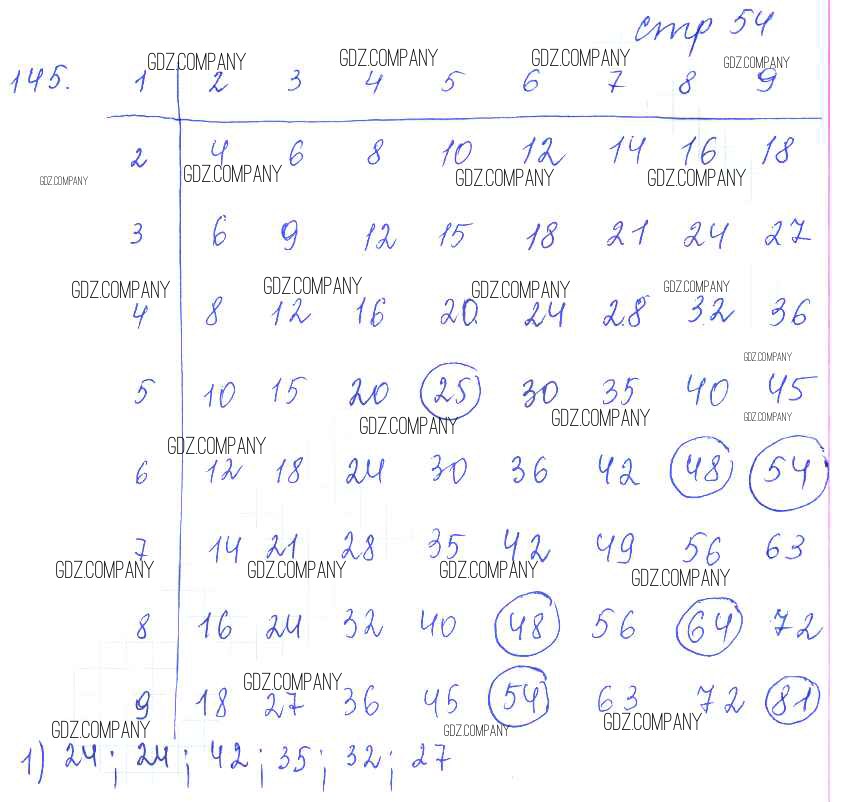 стр 54
145. 1 2 3 4 5 6 7 8 9
2 4 6 8 10 12 14 16 18
3 6 9 12 15 18 21 24 27
4 8 12 16 20 24 28 32 36
5 10 15 20 25 30 35 40 45
6 12 18 24 30 36 42 48 54
7 14 21 28 35 42 49 56 63
8 16 24 32 40 48 56 64 72
9 18 27 36 45 54 63 72 81
1) 24; 24; 42; 35; 32; 27
GDZ.COMPANY GDZ.COMPANY GDZ.COMPANY GDZ.COMPANY
GDZ.COMPANY GDZ.COMPANY GDZ.COMPANY GDZ.COMPANY
GDZ.COMPANY GDZ.COMPANY GDZ.COMPANY GDZ.COMPANY
GDZ.COMPANY
GDZ.COMPANY GDZ.COMPANY GDZ.COMPANY
GDZ.COMPANY
GDZ.COMPANY GDZ.COMPANY GDZ.COMPANY GDZ.COMPANY
GDZ.COMPANY
GDZ.COMPANY GDZ.COMPANY GDZ.COMPANY